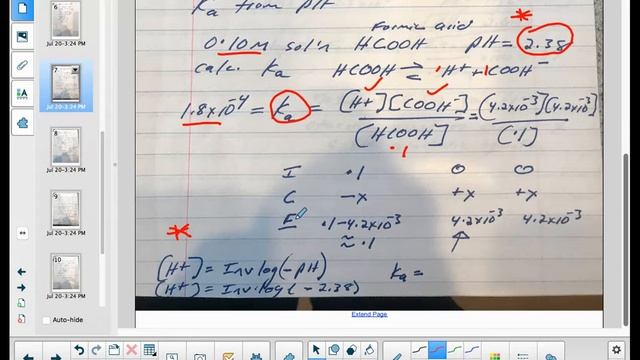 6
Jul 20–3:24 PM
7
Jul 20–3:24 PM
8
Jul 20–3:24 PM
9
Jul 20–3:24 PM
10
Jul 20–3:24 PM
Auto-hide
Ka from pH
Formic acid
0.10M sol'n HCOOH pH = 2.38
calc. Ka HCOOH ⇌ 1H+ + 1COOH-
1.8x10^-4 = Ka = [H+][COOH-] / [HCOOH] = (4.2x10^-3)(4.2x10^-3) / (.1)
.1
I .1 0 0
C -x +x +x
E .1-4.2x10^-3 4.2x10^-3 4.2x10^-3
≈ .1 ↑
[H+] = Inv log(-pH) Ka =
[H+] = Inv log(-2.38)
Extend Page